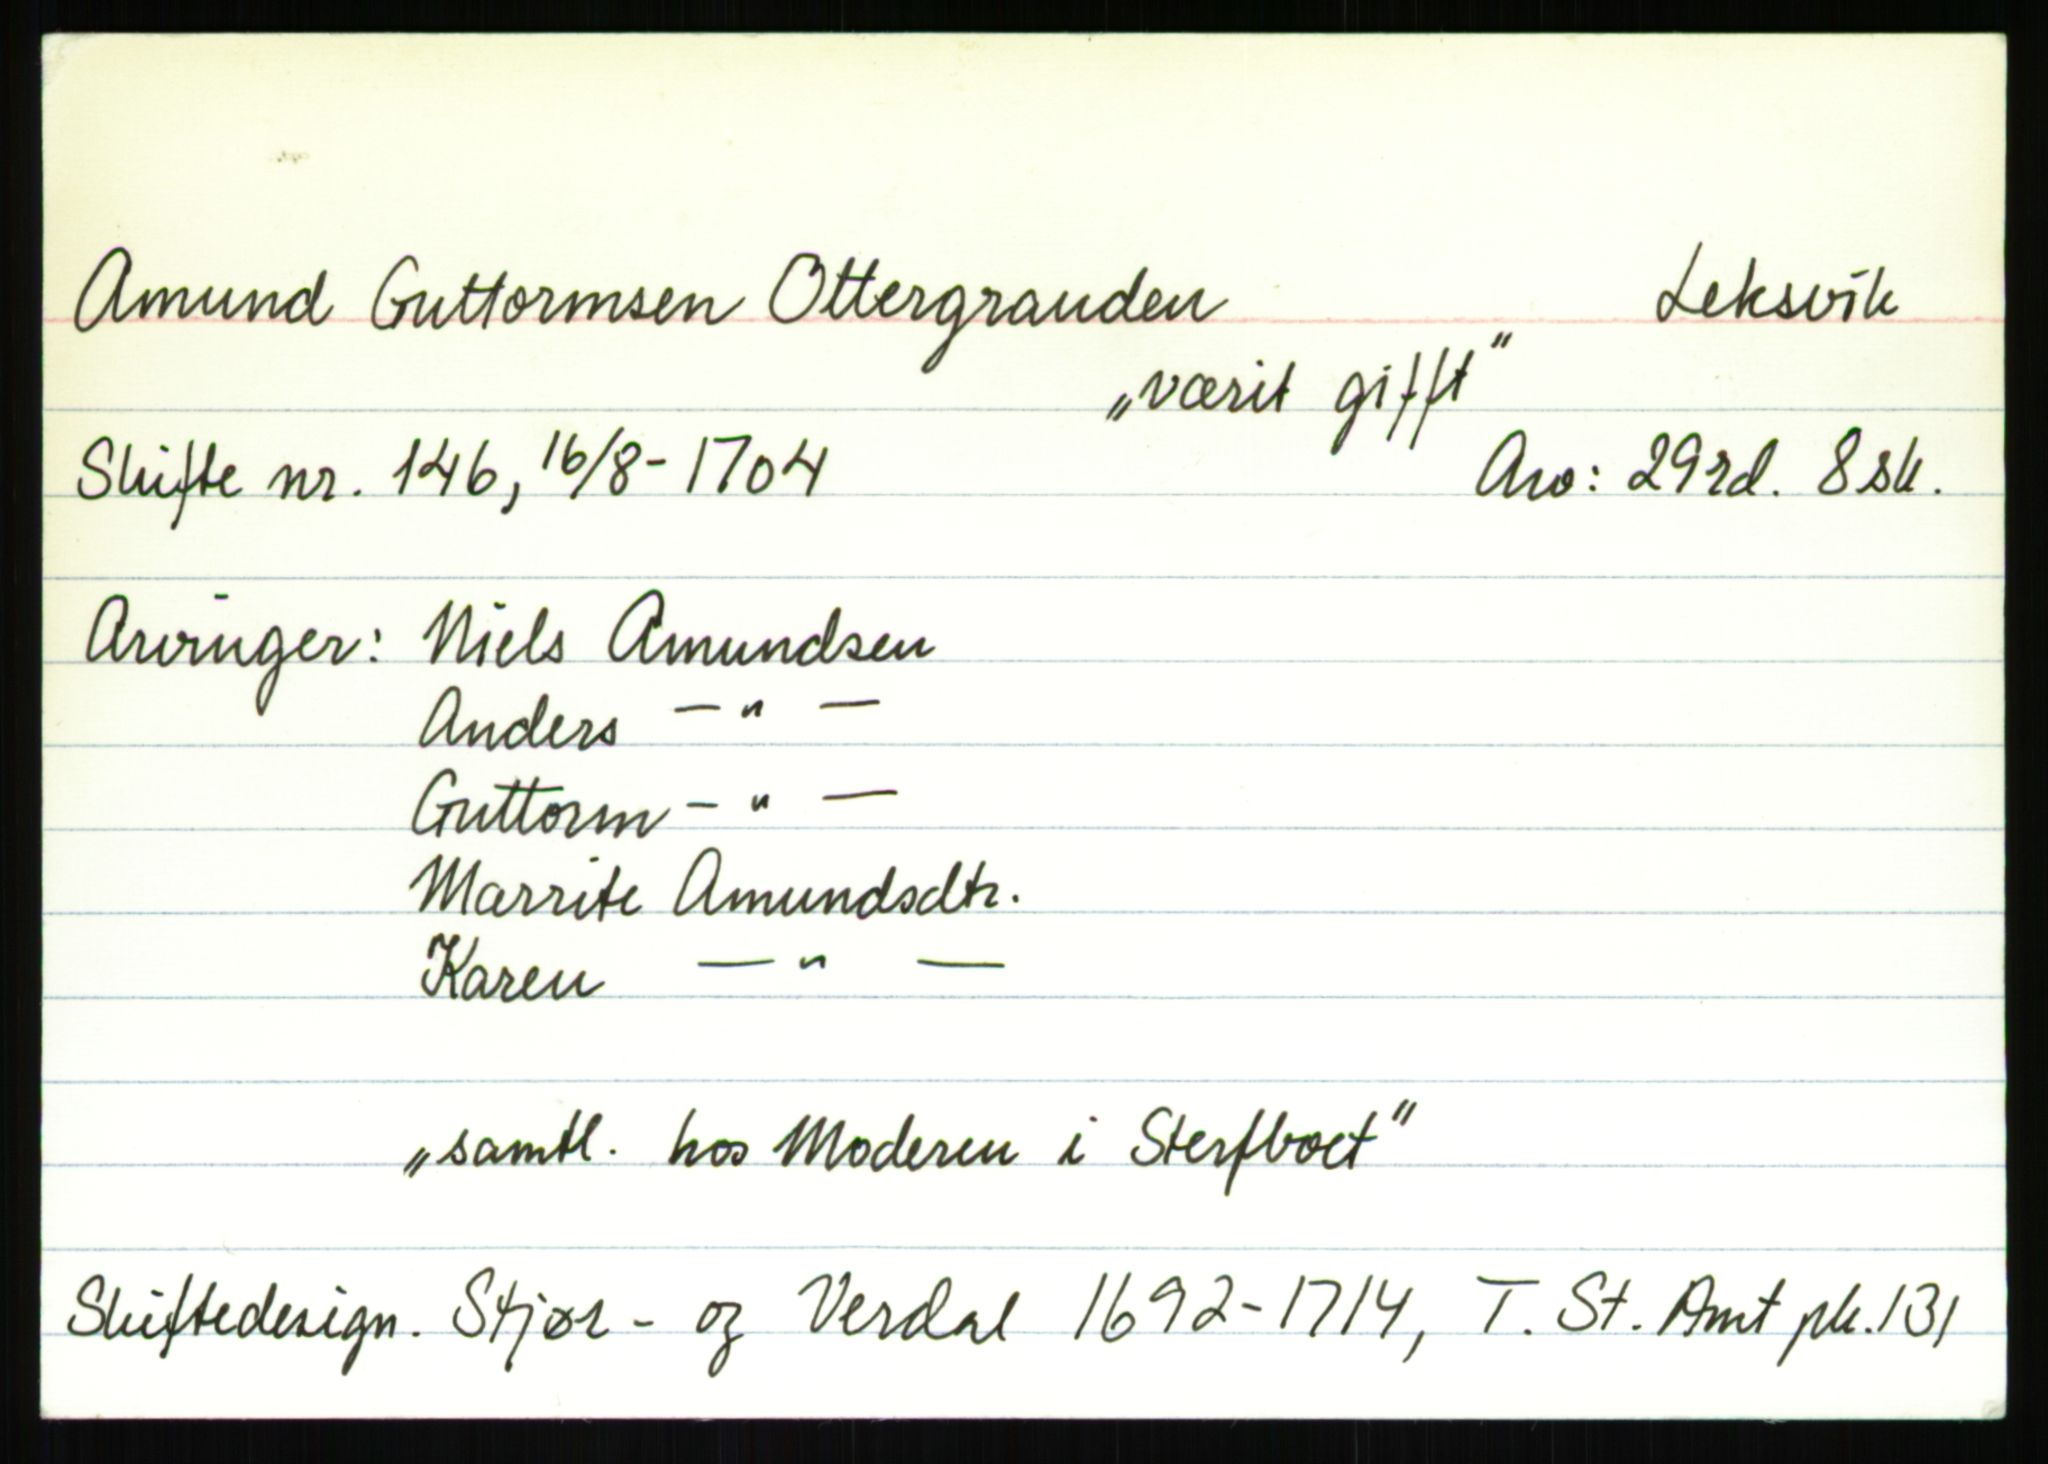 Amund Guttormsen Ottergranden Leksvik
„værit gifft”
Skifte nr. 146, 16/8-1704 Arv: 29 rd. 8 sk.
Arvinger: Niels Amundsen
Anders — " —
Guttorm — " —
Marrite Amundsdtr.
Karen — " —
„samtl. hos Moderen i Sterfboet”
Skiftedesign. Stjør- og Verdal 1692-1714, T. St. Amt pk. 131